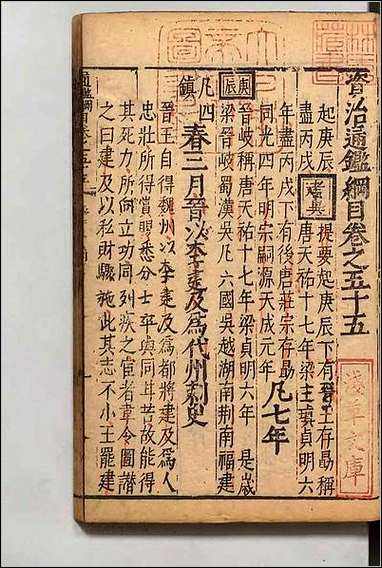 資治通鑑綱目卷之五十五
起庚辰 提要起庚辰下有晉王存勗稱
盡丙戌 考異 唐天祐十七年梁主瑱貞明六
年盡丙戌下有後唐莊宗存勗
同光四年明宗嗣源天成元年 凡七年
庚辰 晉岐稱唐天祐十七年梁貞明六年 是歲
梁晉岐蜀漢吳凡六國吳越湖南荆南福建
凡四鎮
春三月晉以李建及爲代州刺史
晉王自得魏州以李建及爲都將建及爲人
忠壯所得賞賜悉分士卒與同甘苦故能得
其死力所向立功同列疾之宦者韋令圖譖
之曰建及以私財驟施此其志不小王罷建
通鑑綱目卷之五十五
淺草文庫